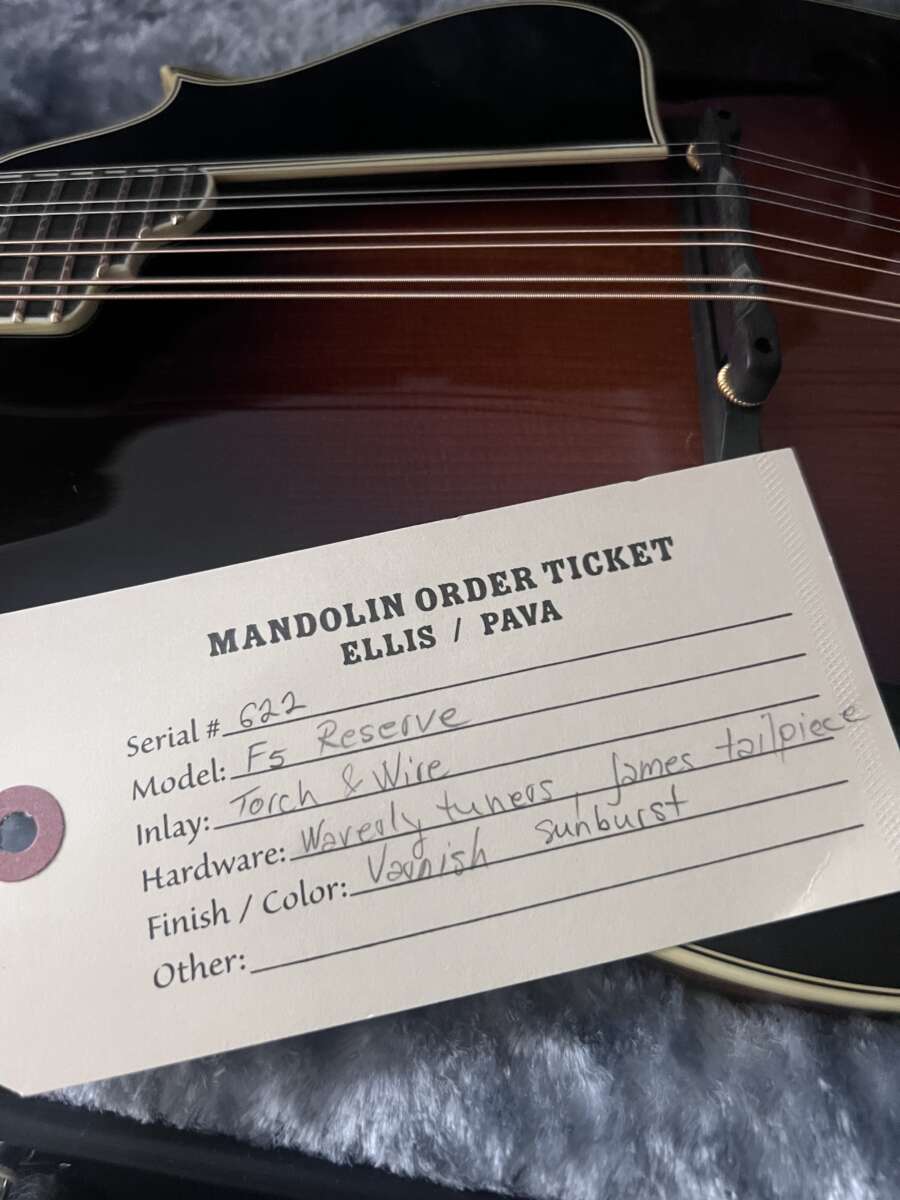 MANDOLIN ORDER TICKET
ELLIS / PAVA
Serial # 622
Model: F5 Reserve
Inlay: Torch & Wire
Hardware: Waverly tuners, James tailpiece
Finish / Color: Varnish sunburst
Other: